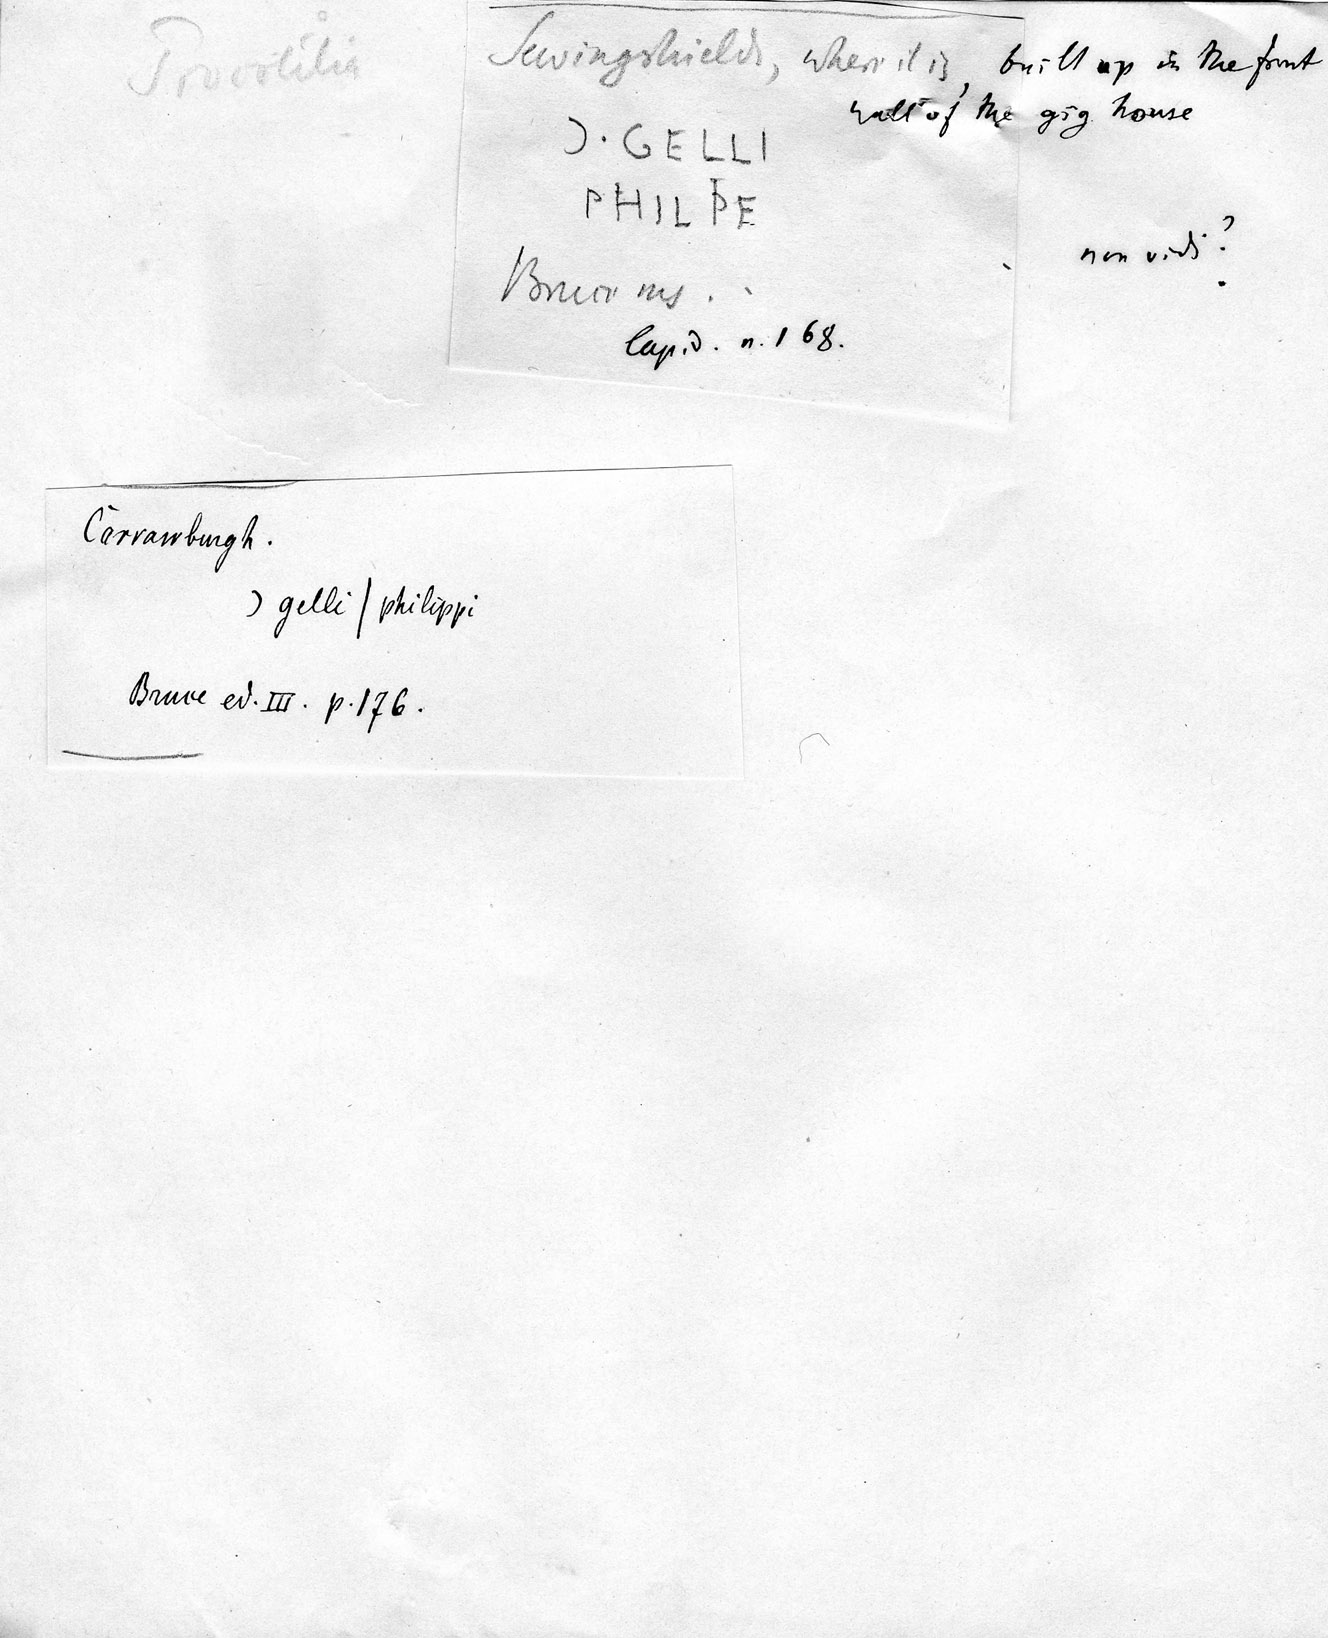 Procolitia
Sewingshields, where it is, built up in the front
wall of the gig house
Ɔ · GELLI
PHILPE
non vidi?
Bruce ms.
lapid. n. 168.
Carrawburgh.
Ɔ gelli / philippi
Bruce ed. III. p. 176.